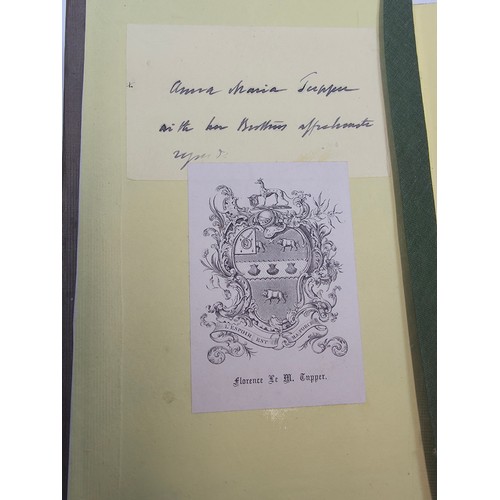 Anna Maria Tupper
with her Brothers affectionate
regard.
L'ESPOIR EST MA FORCE
Florence Le M. Tupper.